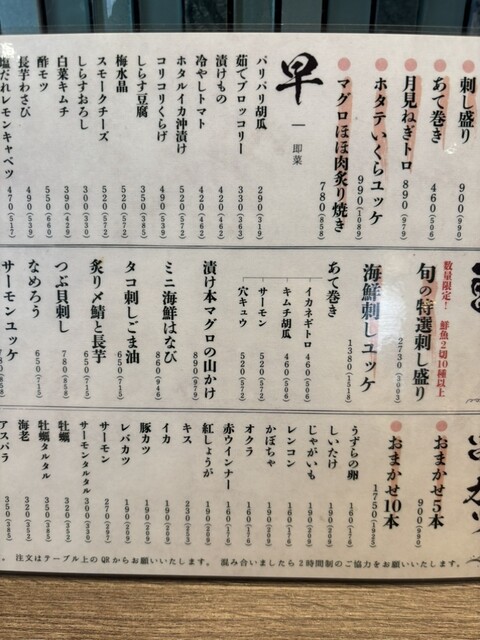 刺し盛り 900(990)
あて巻き 460(506)
月見ねぎトロ 890(979)
ホタテいくらユッケ 990(1089)
マグロほほ肉炙り焼き 780(858)
早
即菜
パリパリ胡瓜 290(319)
茹でブロッコリー 330(363)
冷やしトマト 420(462)
漬けもの 420(462)
ホタルイカ沖漬け 520(572)
コリコリくらげ 490(539)
しらす豆腐 350(385)
梅水晶 520(572)
スモークチーズ 520(572)
しらすおろし 300(330)
白菜キムチ 390(429)
酢モツ 550(660)
長芋わさび 490(539)
塩だれレモンキャベツ 470(517)
数量限定！ 鮮魚2切10種以上
旬の特選刺し盛り 2730(3003)
海鮮刺しユッケ 1380(1518)
あて巻き
イカネギトロ 460(506)
キムチ胡瓜 460(506)
サーモン 520(572)
穴キュウ 520(572)
漬け本マグロの山かけ 890(979)
ミニ海鮮はなび 860(946)
タコ刺しごま油 650(715)
炙り〆鯖と長芋 650(715)
つぶ貝刺し 780(858)
なめろう 650(715)
サーモンユッケ 780(858)
おまかせ5本 900(990)
おまかせ10本 1750(1925)
うずらの卵 160(176)
しいたけ 190(209)
じゃがいも 190(209)
レンコン 160(176)
かぼちゃ 160(176)
オクラ 160(176)
赤ウインナー 160(176)
紅しょうが 190(209)
キス 230(253)
イカ 190(209)
豚カツ 190(209)
レバカツ 190(209)
サーモン 270(297)
サーモンタルタル 300(330)
牡蠣 320(352)
牡蠣タルタル 350(385)
海老 320(352)
アスパラ 350(385)
注文はテーブル上のQRからお願いいたします。 混み合いましたら2時間制のご協力をお願いいたします。